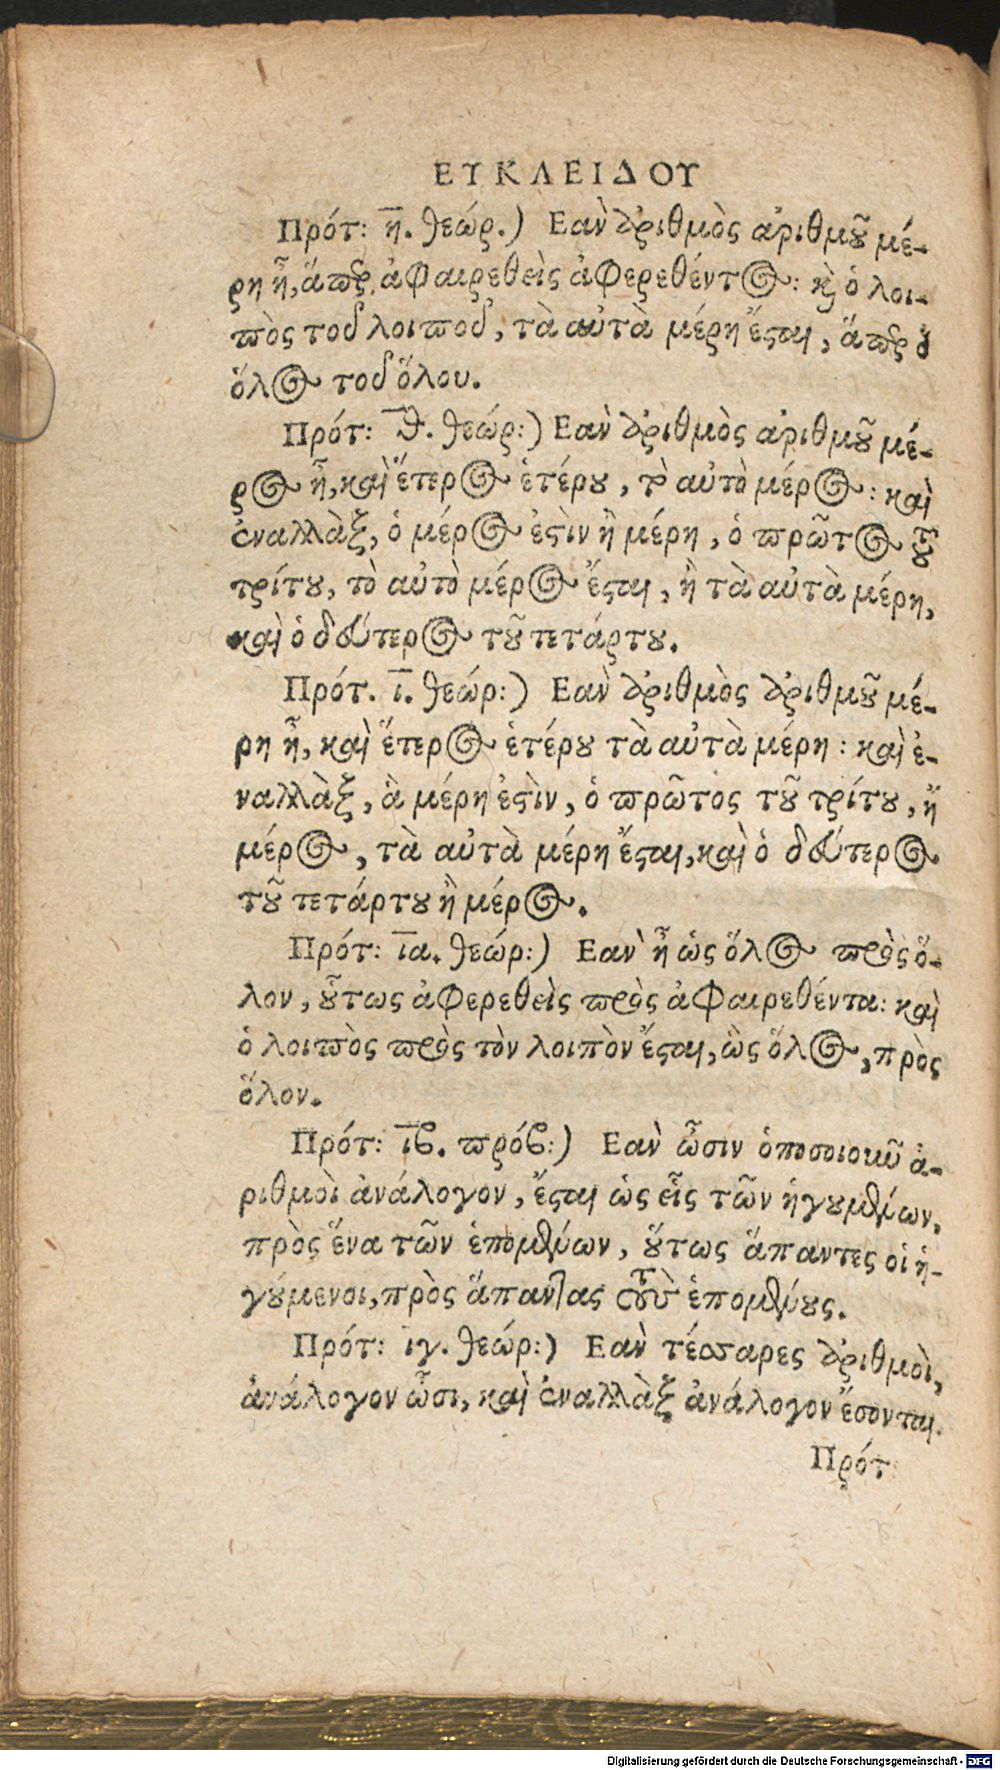 ΕΥΚΛΕΙΔΟΥ
Πρότ: η̅. θεώρ.) Εαν̀ ἀριθμὸς ἀριθμοῦ μέ-
ρη ᾖ, ἅπερ ἀφαιρεθεὶς ἀφερεθέντος: καὶ ὁ λοι-
πὸς τοῦ λοιποῦ, τὰ αὐτὰ μέρη ἔςαι, ἅπερ ὁ
ὅλος τοῦ ὅλου.
Πρότ: θ̅. θεώρ:) Εαν̀ ἀριθμὸς ἀριθμοῦ μέ-
ρος ᾖ, καὶ ἕτερος ἑτέρου, τὸ αὐτὸ μέρος: καὶ
ἐναλλὰξ, ὁ μέρος ἐςὶν ἢ μέρη, ὁ πρῶτος τοῦ
τρίτου, τὸ αὐτὸ μέρος ἔςαι, ἢ τὰ αὐτὰ μέρη,
καὶ ὁ δεύτερος τοῦ τετάρτου.
Πρότ. ι̅. θεώρ:) Εαν̀ ἀριθμὸς ἀριθμοῦ μέ-
ρη ᾖ, καὶ ἕτερος ἑτέρου τὰ αὐτὰ μέρη: καὶ ἐ-
ναλλὰξ, ἃ μέρη ἐςὶν, ὁ πρῶτος τοῦ τρίτου, ἢ
μέρος, τὰ αὐτὰ μέρη ἔςαι, καὶ ὁ δεύτερος
τοῦ τετάρτου ἢ μέρος.
Πρότ: ι̅α. θεώρ:) Εαν̀ ᾖ ὡς ὅλος πρὸς ὅ-
λον, οὕτως ἀφερεθεὶς πρὸς ἀφαιρεθέντα: καὶ
ὁ λοιπὸς πρὸς τὸν λοιπὸν ἔςαι, ὡς ὅλος, πρὸς
ὅλον.
Πρότ: ι̅β. πρόβ:) Εαν̀ ὦσιν ὁποσοιοιοῦν ἀ-
ριθμοὶ ἀνάλογον, ἔςαι ὡς εἷς τῶν ἡγουμένων,
πρὸς ἕνα τῶν ἑπομένων, οὕτως ἅπαντες οἱ ἡ-
γούμενοι, πρὸς ἅπαντας τοὺς ἑπομένους.
Πρότ: ιγ. θεώρ:) Εαν̀ τέσσαρες ἀριθμοὶ,
ἀνάλογον ὦσι, καὶ ἐναλλὰξ ἀνάλογον ἔσονται.
Πρότ
Digitalisierung gefördert durch die Deutsche Forschungsgemeinschaft - DFG